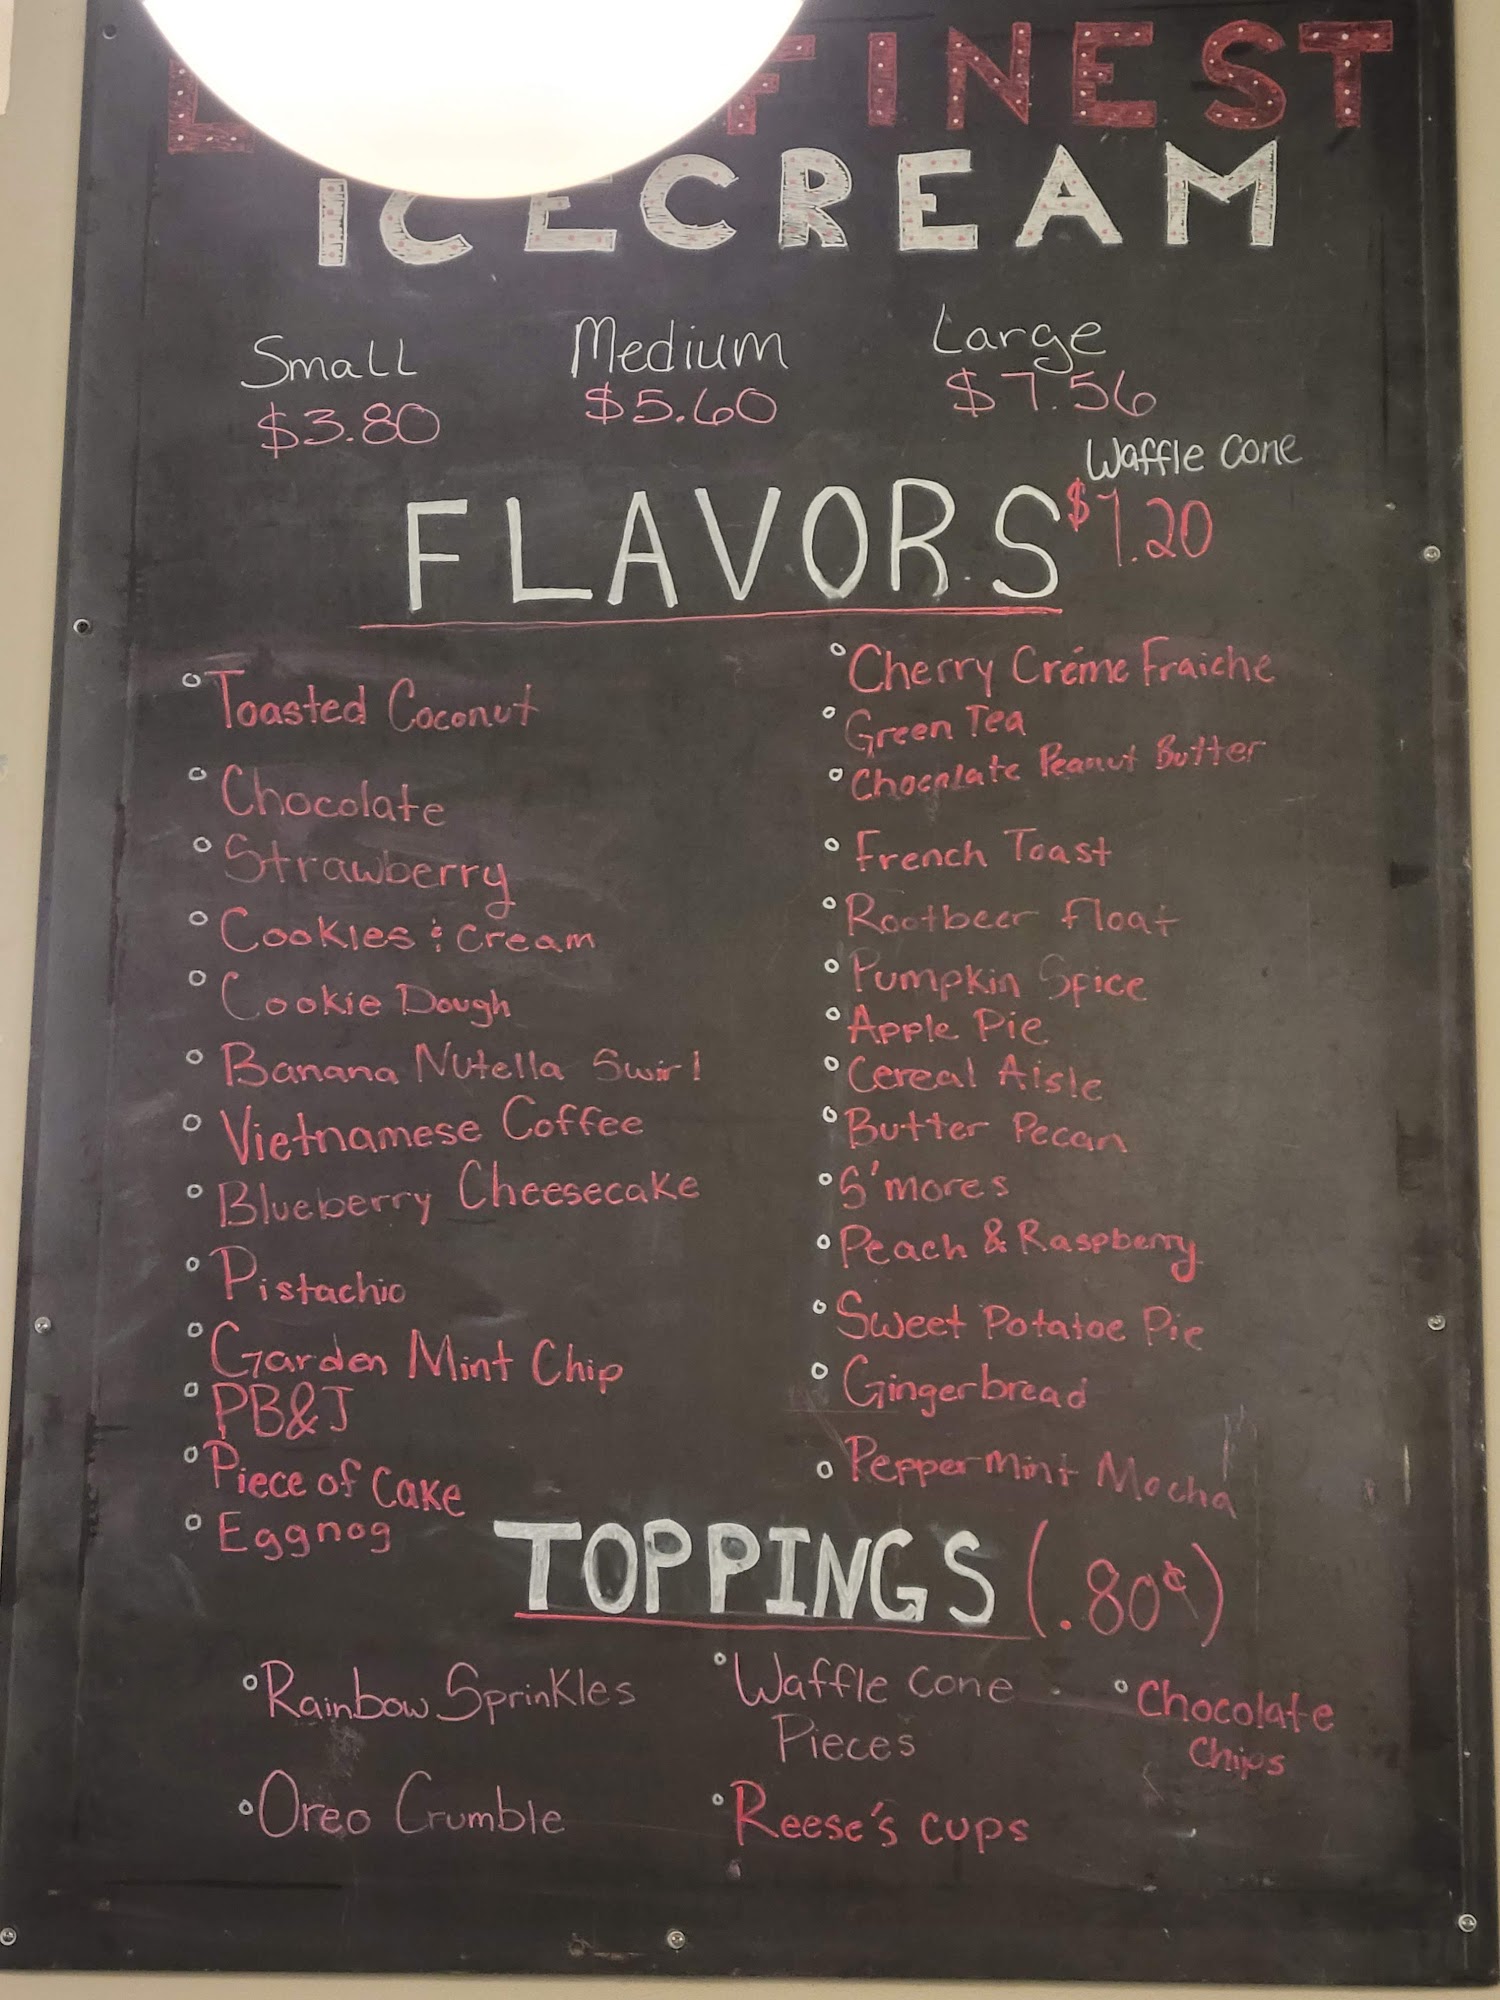 FINEST
ICECREAM
Small Medium Large
$3.80 $5.60 $7.56
Waffle cone
$1.20
FLAVORS
Toasted Coconut
Chocolate
Strawberry
Cookies & Cream
Cookie Dough
Banana Nutella Swirl
Vietnamese Coffee
Blueberry Cheesecake
Pistachio
Garden Mint Chip
PB&J
Piece of Cake
Eggnog
Cherry Créme Fraiche
Green Tea
Chocolate Peanut Butter
French Toast
Rootbeer Float
Pumpkin Spice
Apple Pie
Cereal Aisle
Butter Pecan
S'mores
Peach & Raspberry
Sweet Potatoe Pie
Gingerbread
Peppermint Mocha
TOPPINGS (.80¢)
Rainbow Sprinkles
Oreo Crumble
Waffle cone
Pieces
Reese's cups
Chocolate
Chips